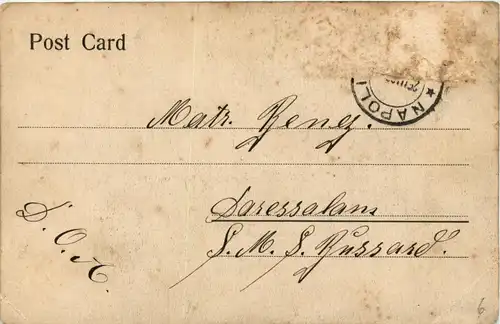 Post Card
NAPOLI
Matr. Reney.
Daressalam
S. M. S. Bussard.
D. O. A.
6